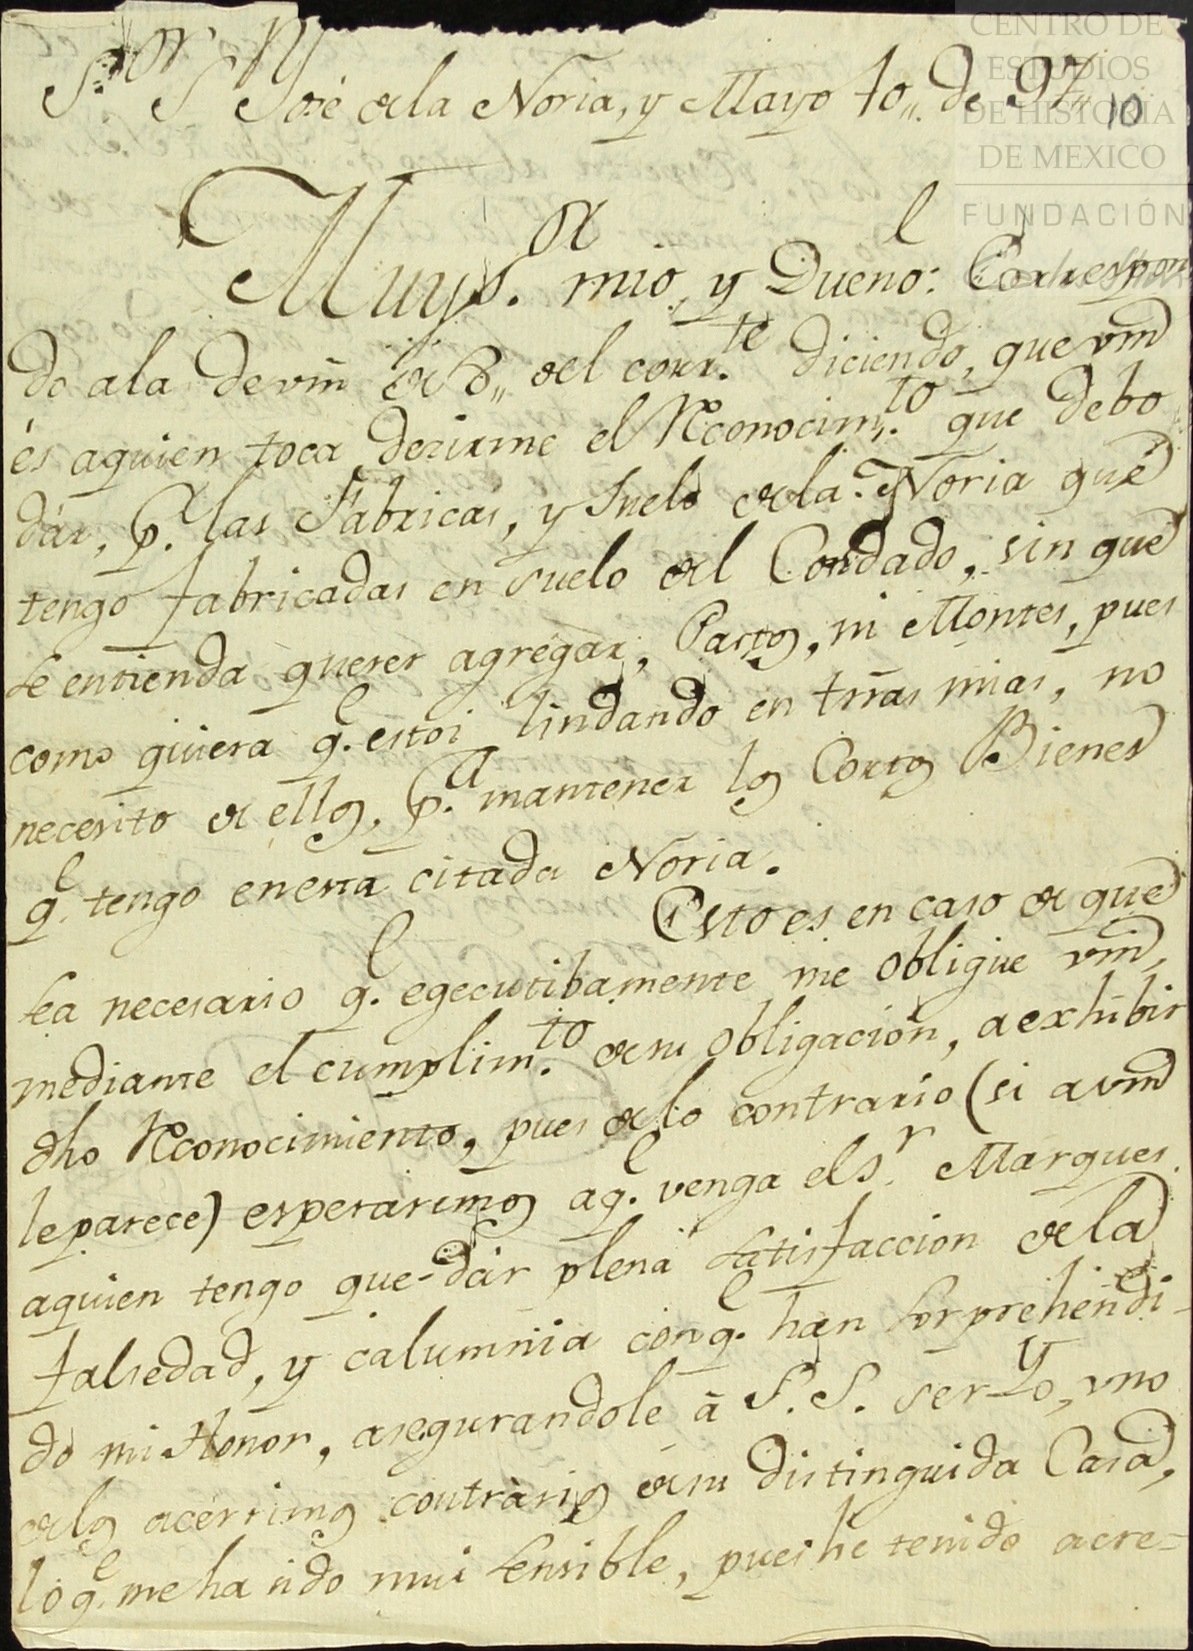 Sor Sn Jose de la Noria, y Mayo 10,, de 97,,
10
CENTRO DE
ESTUDIOS
DE HISTORIA
DE MEXICO
FUNDACIÓN
Muy Sor. mio, y Dueño: Correspon
do ala de vm̃ de 8,, del corr.te diciendo, que vmd
és aquien toca decirme el Reconocim.to que debo
dár, p.r las Fabricas, y Suelo dela Noria que
tengo fabricadas en suelo del Condado, sin que
se entienda querer agregar, Pastos, ni Montes, pues
como quiera q.e estoi lindando en trr̃as mias, no
necesito de ellos, p.a mantener los Cortos Bienes
q.e tengo enesta citada Noria.
Esto es en caso de que
sea necesario q.e egecutibamente me obligue vmd,
mediante el cumplim.to de su obligación, a exhibir
dho Reconocimiento, pues delo contrario (si a vmd
le parece) esperarémos aq.e venga el S.r Marques
aquien tengo que dár plena satisfaccion dela
falsedad, y calumnia conq.e han sorprehendi-
do mi Honor, asegurandole á S. S. ser Yo, uno
delos acerrimos contrários de su distinguida Casa,
loq.e me ha sido mui sensible, pues he tenido acre=